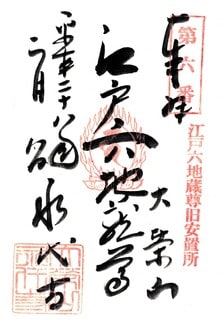 第六番
奉拝
江戸六地蔵尊旧安置所
大栄山
江戸六地蔵尊
六
平成二十八年
二月
永代寺